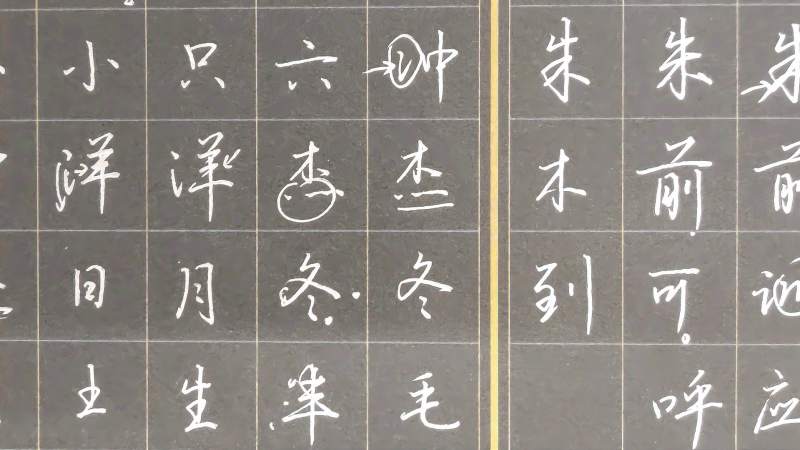 小 只 六 朱 朱 朱
洋 洋 杰 杰 木 前 前
日 月 冬 冬 到 可
主 生 毛 呼 应